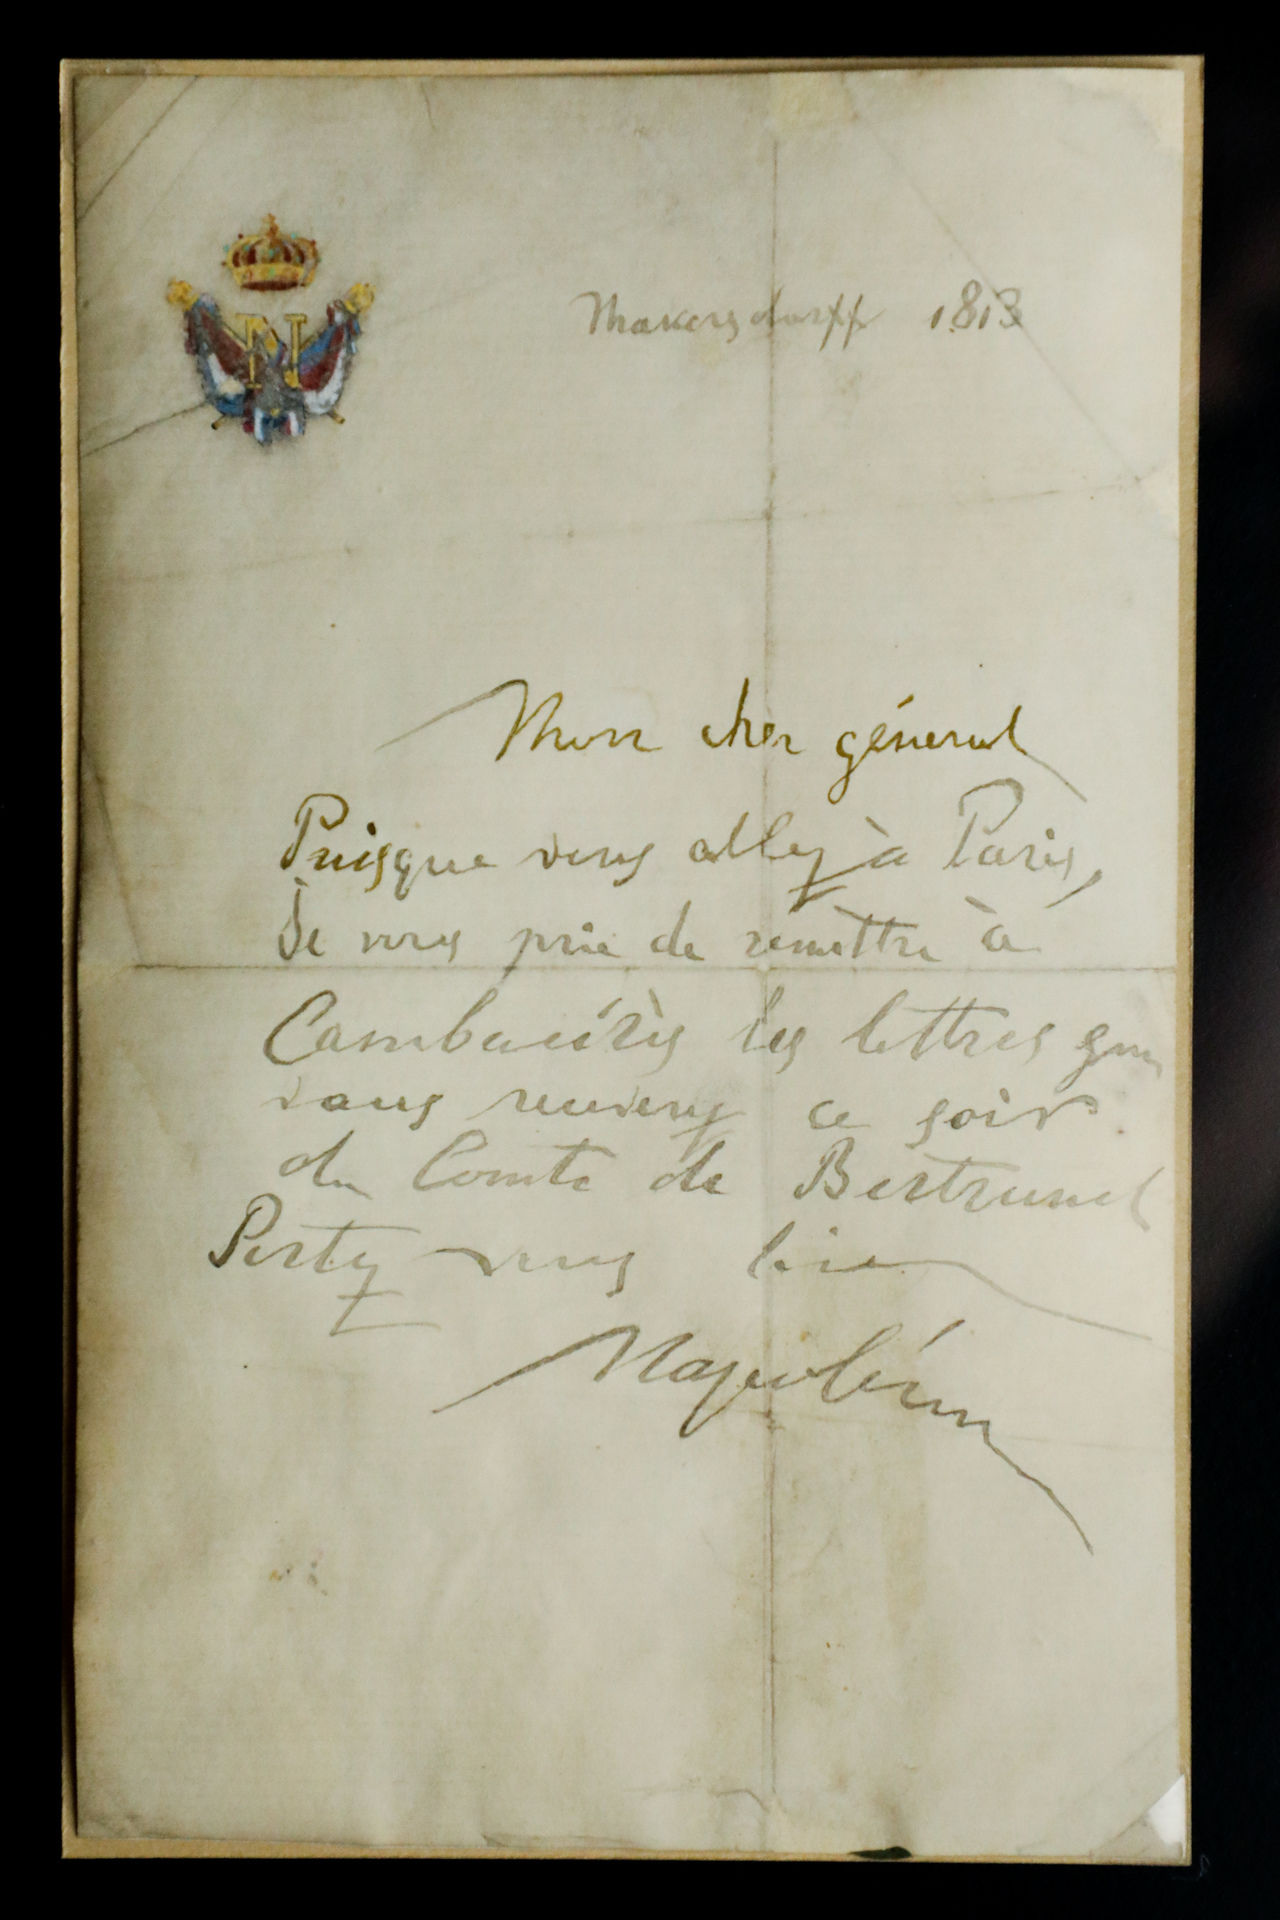 N
Makersdorff 1813
Mon cher géneral
Puisque vous allez à Paris,
Je vous prie de remèttre à
Cambacérès les lettres que
vous recevrez ce soir
du Comte de Bertrand
Portez vous bien
Napoléon